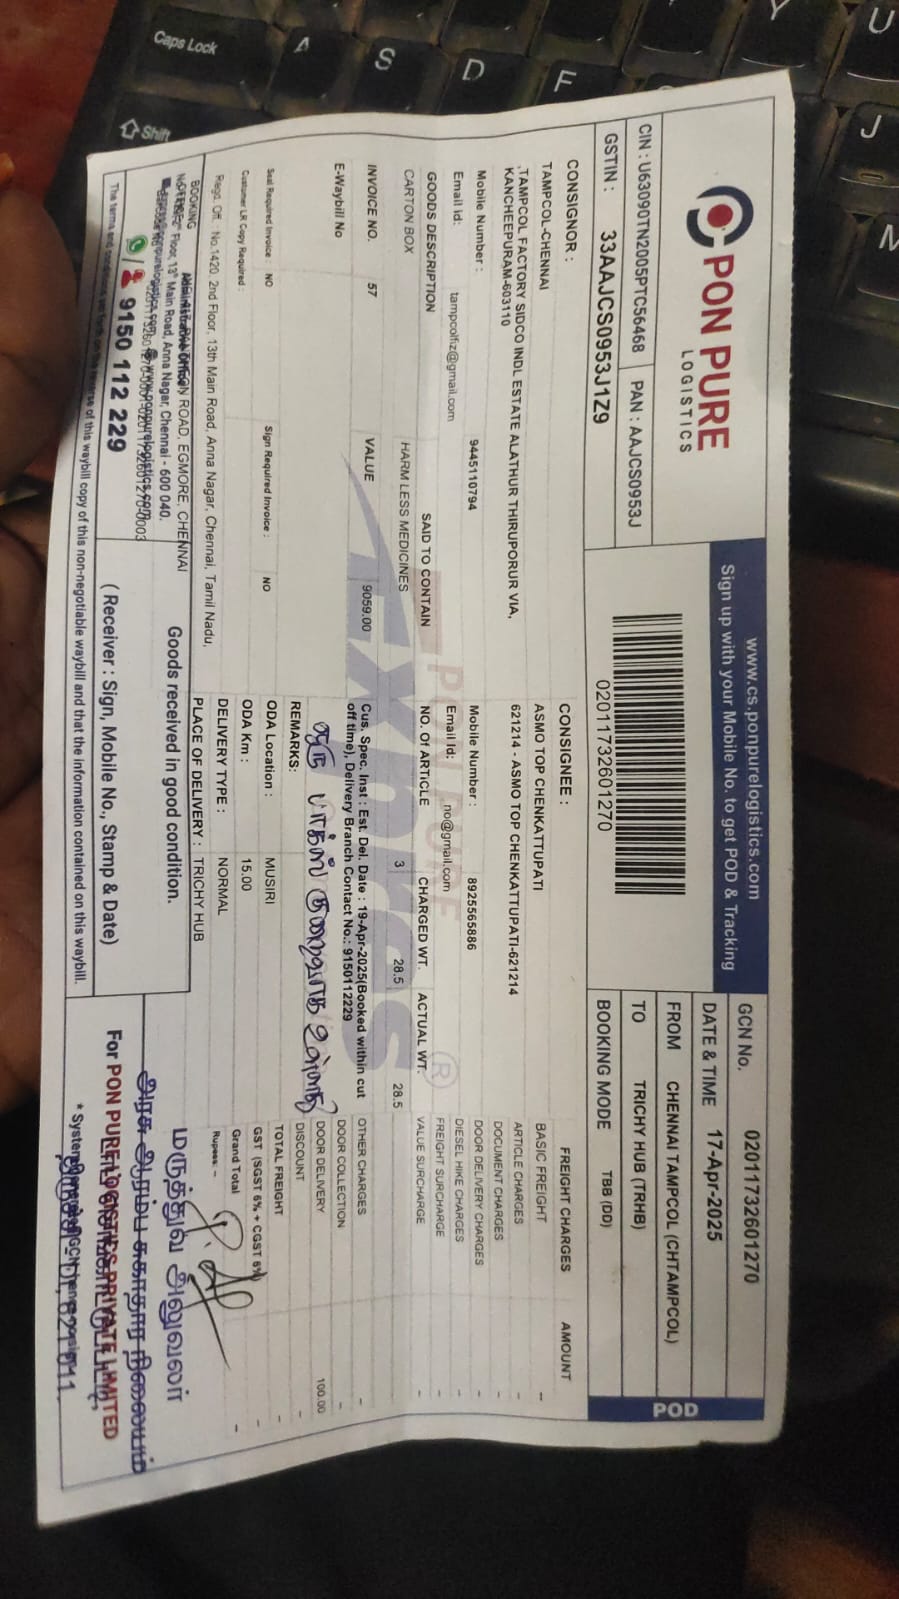 PON PURE
LOGISTICS
www.cs.ponpurelogistics.com
Sign up with your Mobile No. to get POD & Tracking
CIN : U63090TN2005PTC56468 PAN : AAJCS0953J
GSTIN : 33AAJCS0953J1Z9
02011732601270
GCN No. 02011732601270
DATE & TIME 17-Apr-2025
FROM CHENNAI TAMPCOL (CHTAMPCOL)
TO TRICHY HUB (TRHB)
BOOKING MODE TBB (DD)
POD
CONSIGNOR :
TAMPCOL-CHENNAI
,TAMPCOL FACTORY SIDCO INDL ESTATE ALATHUR THIRUPORUR VIA,
KANCHEEPURAM-603110
Mobile Number : 9445110794
Email id: tampcolfiz@gmail.com
CONSIGNEE :
ASMO TOP CHENKATTUPATI
621214 - ASMO TOP CHENKATTUPATI-621214
Mobile Number : 8925565886
Email Id: no@gmail.com
GOODS DESCRIPTION SAID TO CONTAIN NO. Of ARTICLE CHARGED WT. ACTUAL WT.
CARTON BOX HARM LESS MEDICINES 3 28.5 28.5
INVOICE NO. 57 VALUE 9059.00
E-Waybill No
Cus. Spec. Inst : Est. Del. Date : 19-Apr-2025(Booked within cut
off time), Delivery Branch Contact No.: 9150112229
REMARKS:
ஒரு பாக்ஸ் குறைவாக உள்ளது
Seal Required Invoice : NO Sign Required Invoice : NO
Customer LR Copy Required :
ODA Location : MUSIRI
ODA Km : 15.00
DELIVERY TYPE : NORMAL
PLACE OF DELIVERY : TRICHY HUB
FREIGHT CHARGES AMOUNT
BASIC FREIGHT -
ARTICLE CHARGES -
DOCUMENT CHARGES -
DOOR DELIVERY CHARGES -
DIESEL HIKE CHARGES -
FREIGHT SURCHARGE -
VALUE SURCHARGE -
OTHER CHARGES -
DOOR COLLECTION -
DOOR DELIVERY 100.00
DISCOUNT -
TOTAL FREIGHT -
GST (SGST 6% + CGST 6%) -
Grand Total -
Rupees: -
Regd. Off. No.1420, 2nd Floor, 13th Main Road, Anna Nagar, Chennai, Tamil Nadu,
BOOKING
ROAD, EGMORE, CHENNAI
Floor, 13th Main Road, Anna Nagar, Chennai - 600 040.
9150 112 229
Goods received in good condition.
( Receiver : Sign, Mobile No., Stamp & Date)
மருத்துவ அலுவலர்
அரசு ஆரம்ப சுகாதார நிலையம்
For PON PURE LOGISTICS PRIVATE LIMITED
PON PURE
Express